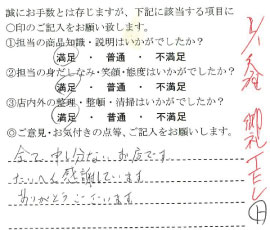 誠にお手数とは存じますが、下記に該当する項目に
○印のご記入をお願い致します。
①担当の商品知識・説明はいかがでしたか?
満足 ・ 普通 ・ 不満足
②担当の身だしなみ・笑顔・態度はいかがですか?
満足 ・ 普通 ・ 不満足
③店内外の整理・整頓・清掃はいかがですか?
満足 ・ 普通 ・ 不満足
◎ご意見・お気付きの点等、ご記入をお願いします。
全て申し分ないお店です
たいへん感謝しています
ありがとうございます
御礼TEL